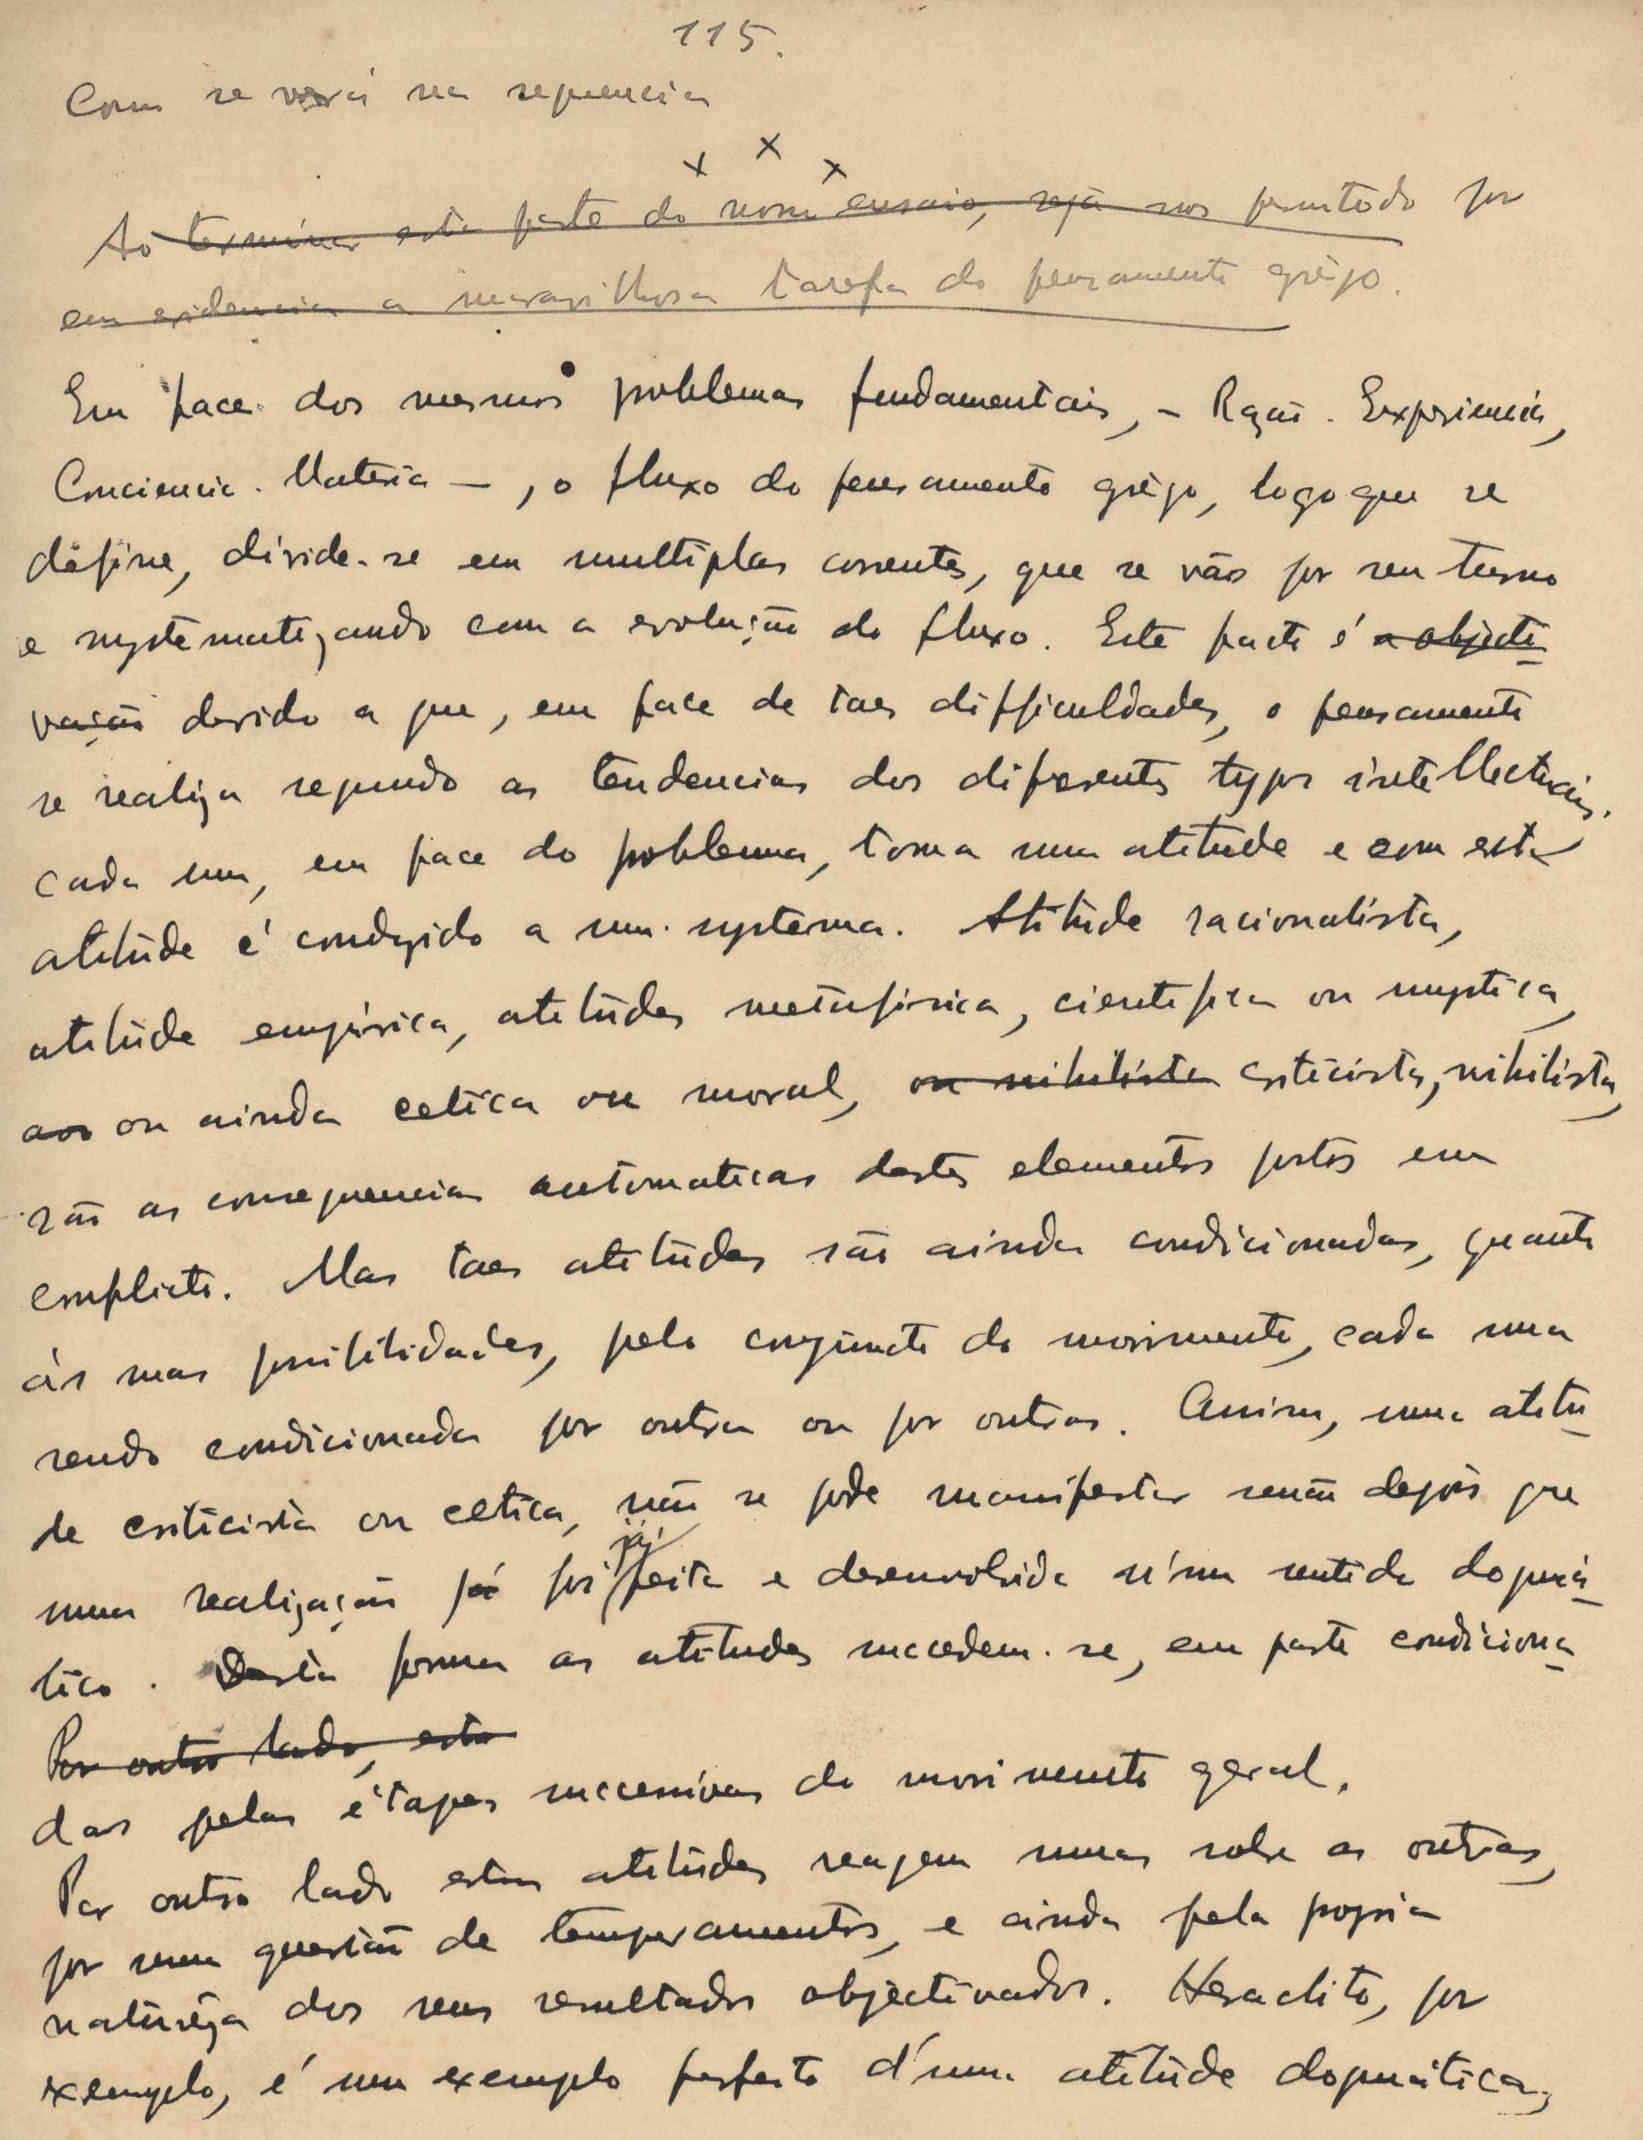 115.
Como se verá na sequencia
x x x
Ao terminar esta parte do nosso ensaio, seja nos permitido por
em evidencia a maravilhosa tarefa do pensamento grêgo.
Em face dos mesmos problemas fundamentais, – Razão. Experiencia,
Conciencia. Materia –, o fluxo do pensamento grêgo, logo que se
define, divide-se em multiplas correntes, que se vão por seu turno
e systematizando com a evolução do fluxo. Este facto é a objecti-
vação devido a que, em face de taes difficuldades, o pensamento
se realiza segundo as tendencias dos diferentes typos intellectuais.
Cada um, em face do problema, toma uma atitude e com esta
atitude é conduzido a um systema. Atitude racionalista,
atitude empirica, atitudes metafisica, cientifica ou mystica,
aos ou ainda cetica ou moral, ou nihilista criticista, nihilista,
são as consequencias automaticas destes elementos postos em
conflicto. Mas taes atitudes são ainda condicionadas, quanto
às suas possibilidades, pelo conjuncto do movimento, cada uma
sendo condicionada por outra ou por outras. Assim, uma atitu-
de criticista ou cetica, não se pode manifestar senão depois que
uma realização já foi já feita e desenvolvida n'um sentido dogmá-
tico. Desta forma as atitudes succedem-se, em parte condiciona-
Por outro lado, esta
das pelas étapas successivas do movimento geral.
Por outro lado estas atitudes reagem umas sobre as outras,
por uma questão de temperamentos, e ainda pela propria
naturêza dos seus resultados objectivados. Heraclito, por
exemplo, é um exemplo perfeito d'uma atitude dogmática,